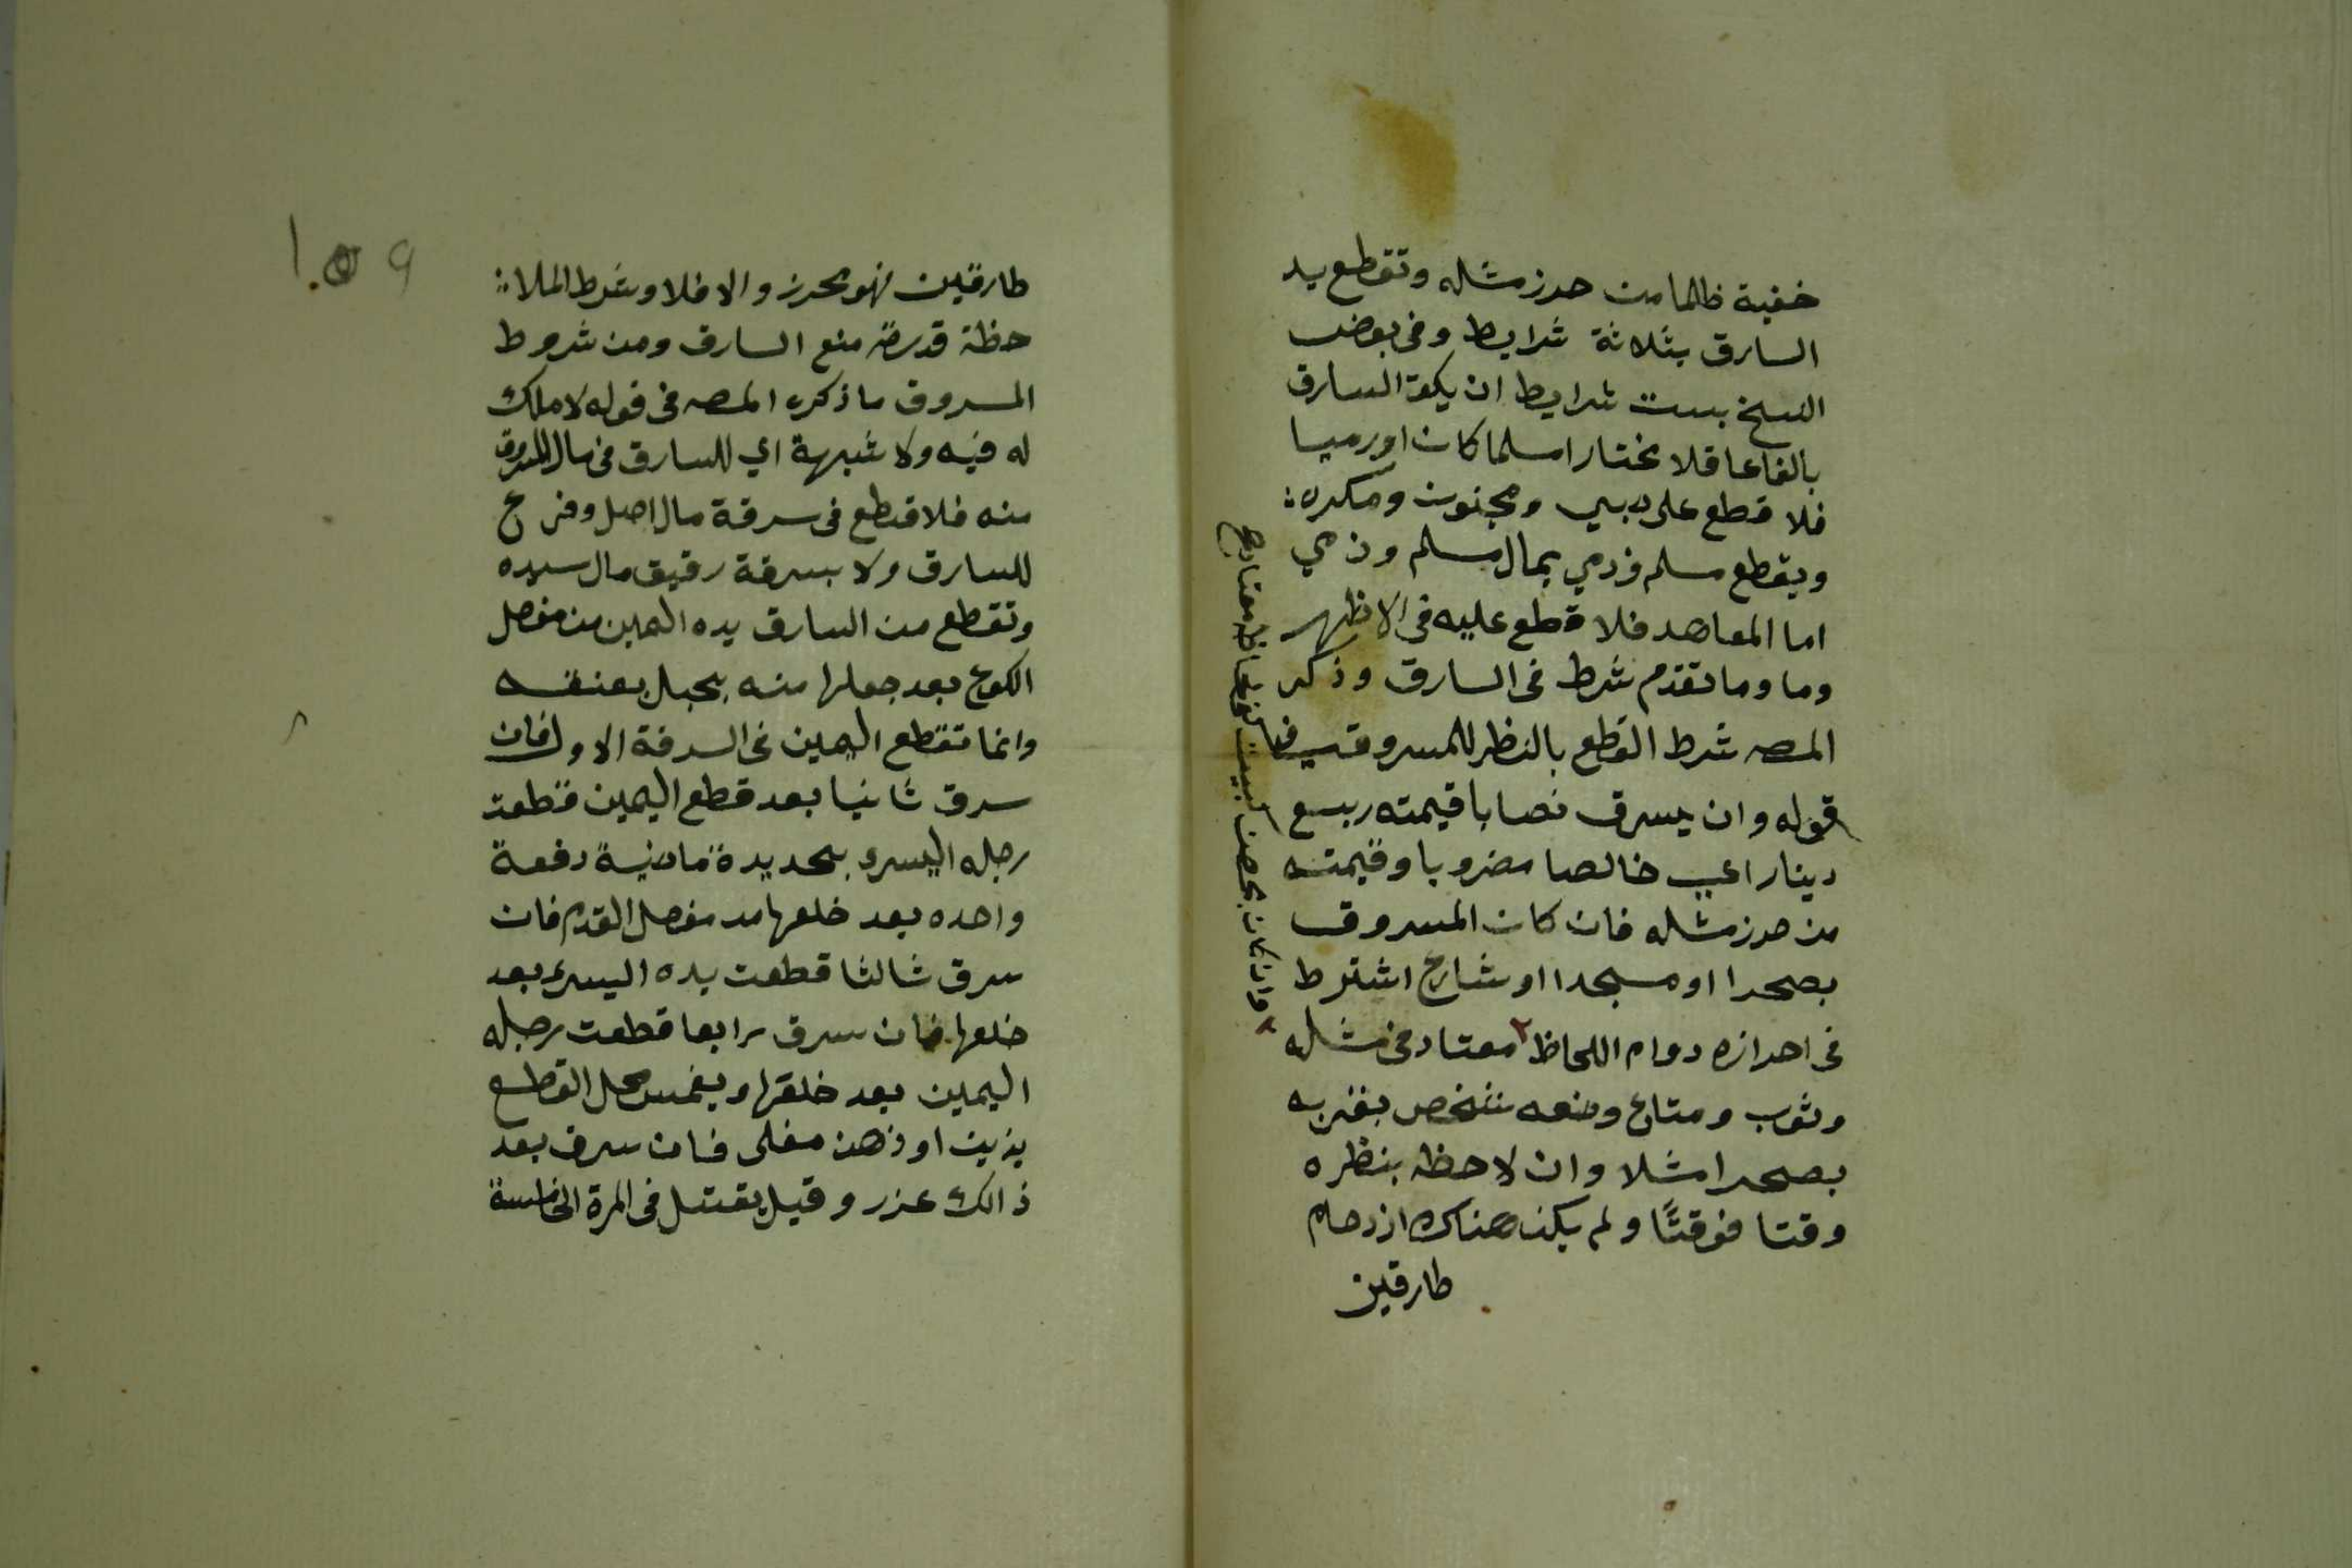 خفية ظلما من حرز مثله وتقطع يد
السارق بثلاثة شرايط وفي بعض
النسخ بست شرايط ان يكون السارق
بالغا عاقلا مختارا مسلما كان او ذميا
فلا قطع على صبي ومجنون ومكره
ويقطع مسلم وذمي بمال مسلم وذمي
اما المعاهد فلا قطع عليه في الاظهر
وما وما تقدم شرط في السارق وذكر
المصه شرط القطع بالنظر للمسروق في
قوله وان يسرق نصابا قيمته ربع
دينار اي خالصا مضروبا وقيمته
من حرز مثله فان كان المسروق
بصحرا او مسجدا او شارع اشترط
في احرازه دوام اللحاظ ٢ معتاد في مثله
وثوب ومتاع وضعه شخص بقربه
بصحرا مثلا وان لاحظه بنظره
وقتا فوقتًا ولم يكن هناك ازدحام
طارقين
٢ وان كان بحصن كبيت كفى لحاظ معتاد صح
١٠٩
طارقين فهو محرز والا فلا وشرط الملا
حظة قدرته منع السارق ومن شروط
المسروق ما ذكره المصه في قوله لا ملك
له فيه ولا شبهة اي للسارق في مال المسروق
منه فلا قطع في سرقة مال اصل وفرع
للسارق ولا بسرقة رقيق مال سيده
وتقطع من السارق يده اليمين من مفصل
الكوع بعد جعلها منه بحبل بعنفه
وانما تقطع اليمين في السرقة الاولى فان
سرق ثانيا بعد قطع اليمين قطعت
رجله اليسرى بحديدة ماضية دفعة
واحده بعد خلعها من مفصل القدم فان
سرق ثالثا قطعت يده اليسرى بعد
خلعها فان سرق رابعا قطعت رجله
اليمين بعد خلقها ويغمس محل القطع
بزيت او دهن مغلى فان سرق بعد
ذالك عزر وقيل يقتل في المرة الخامسة